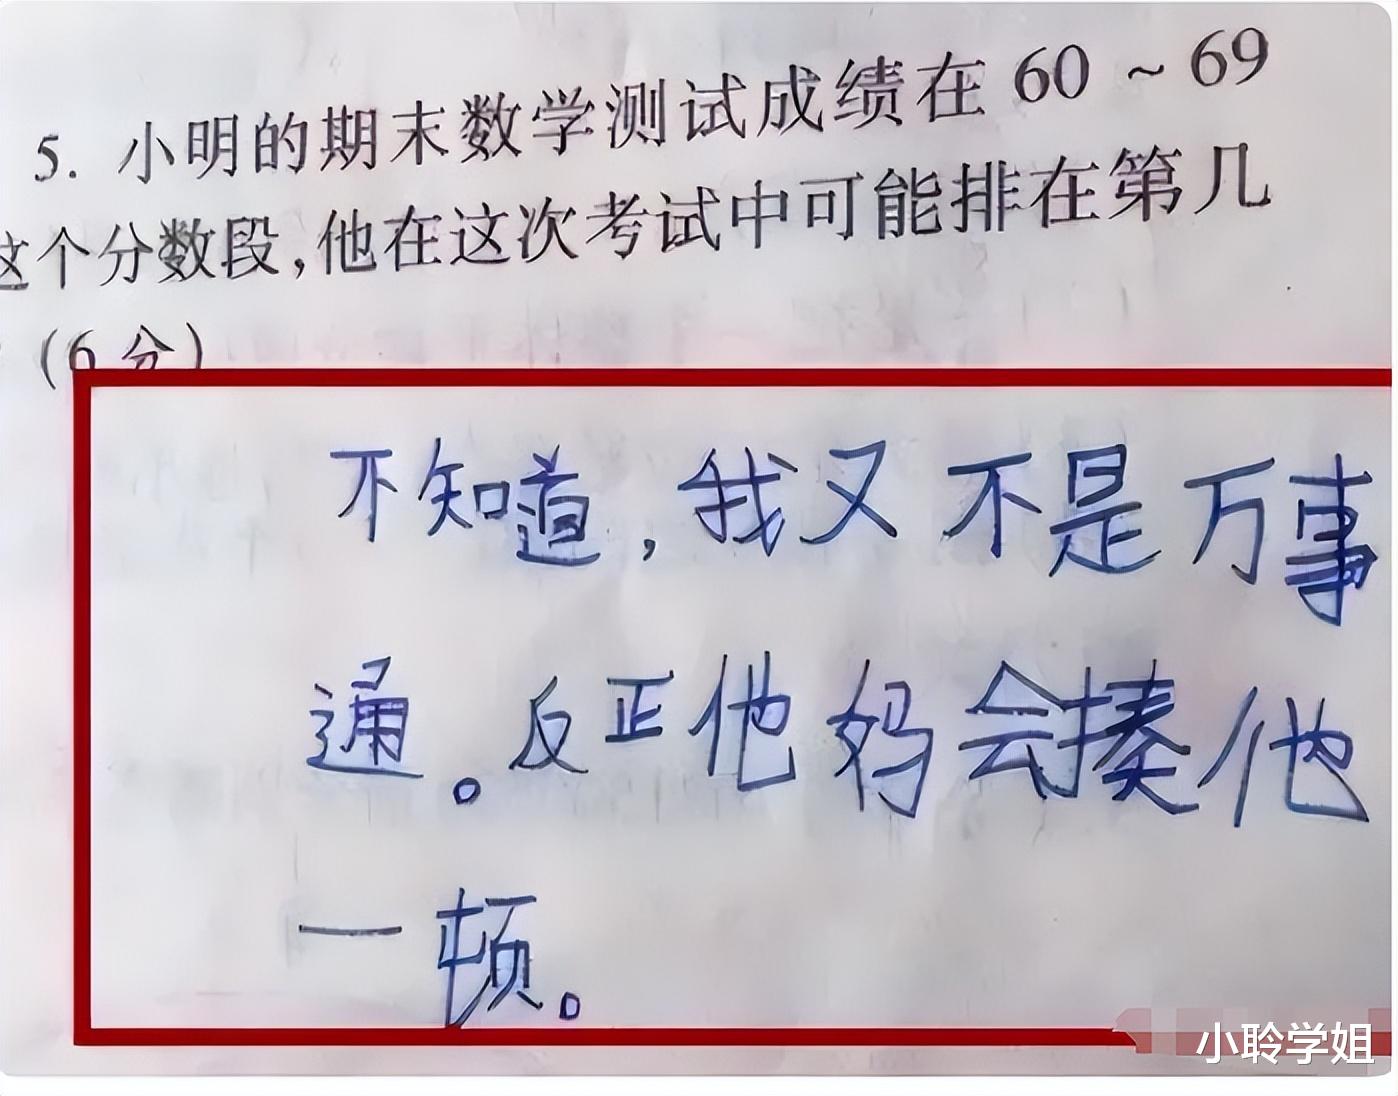 5. 小明的期末数学测试成绩在 60 ~ 69
这个分数段,他在这次考试中可能排在第几
(6 分)
不知道,我又不是万事
通。反正他妈会揍他
一顿。
小聆学姐